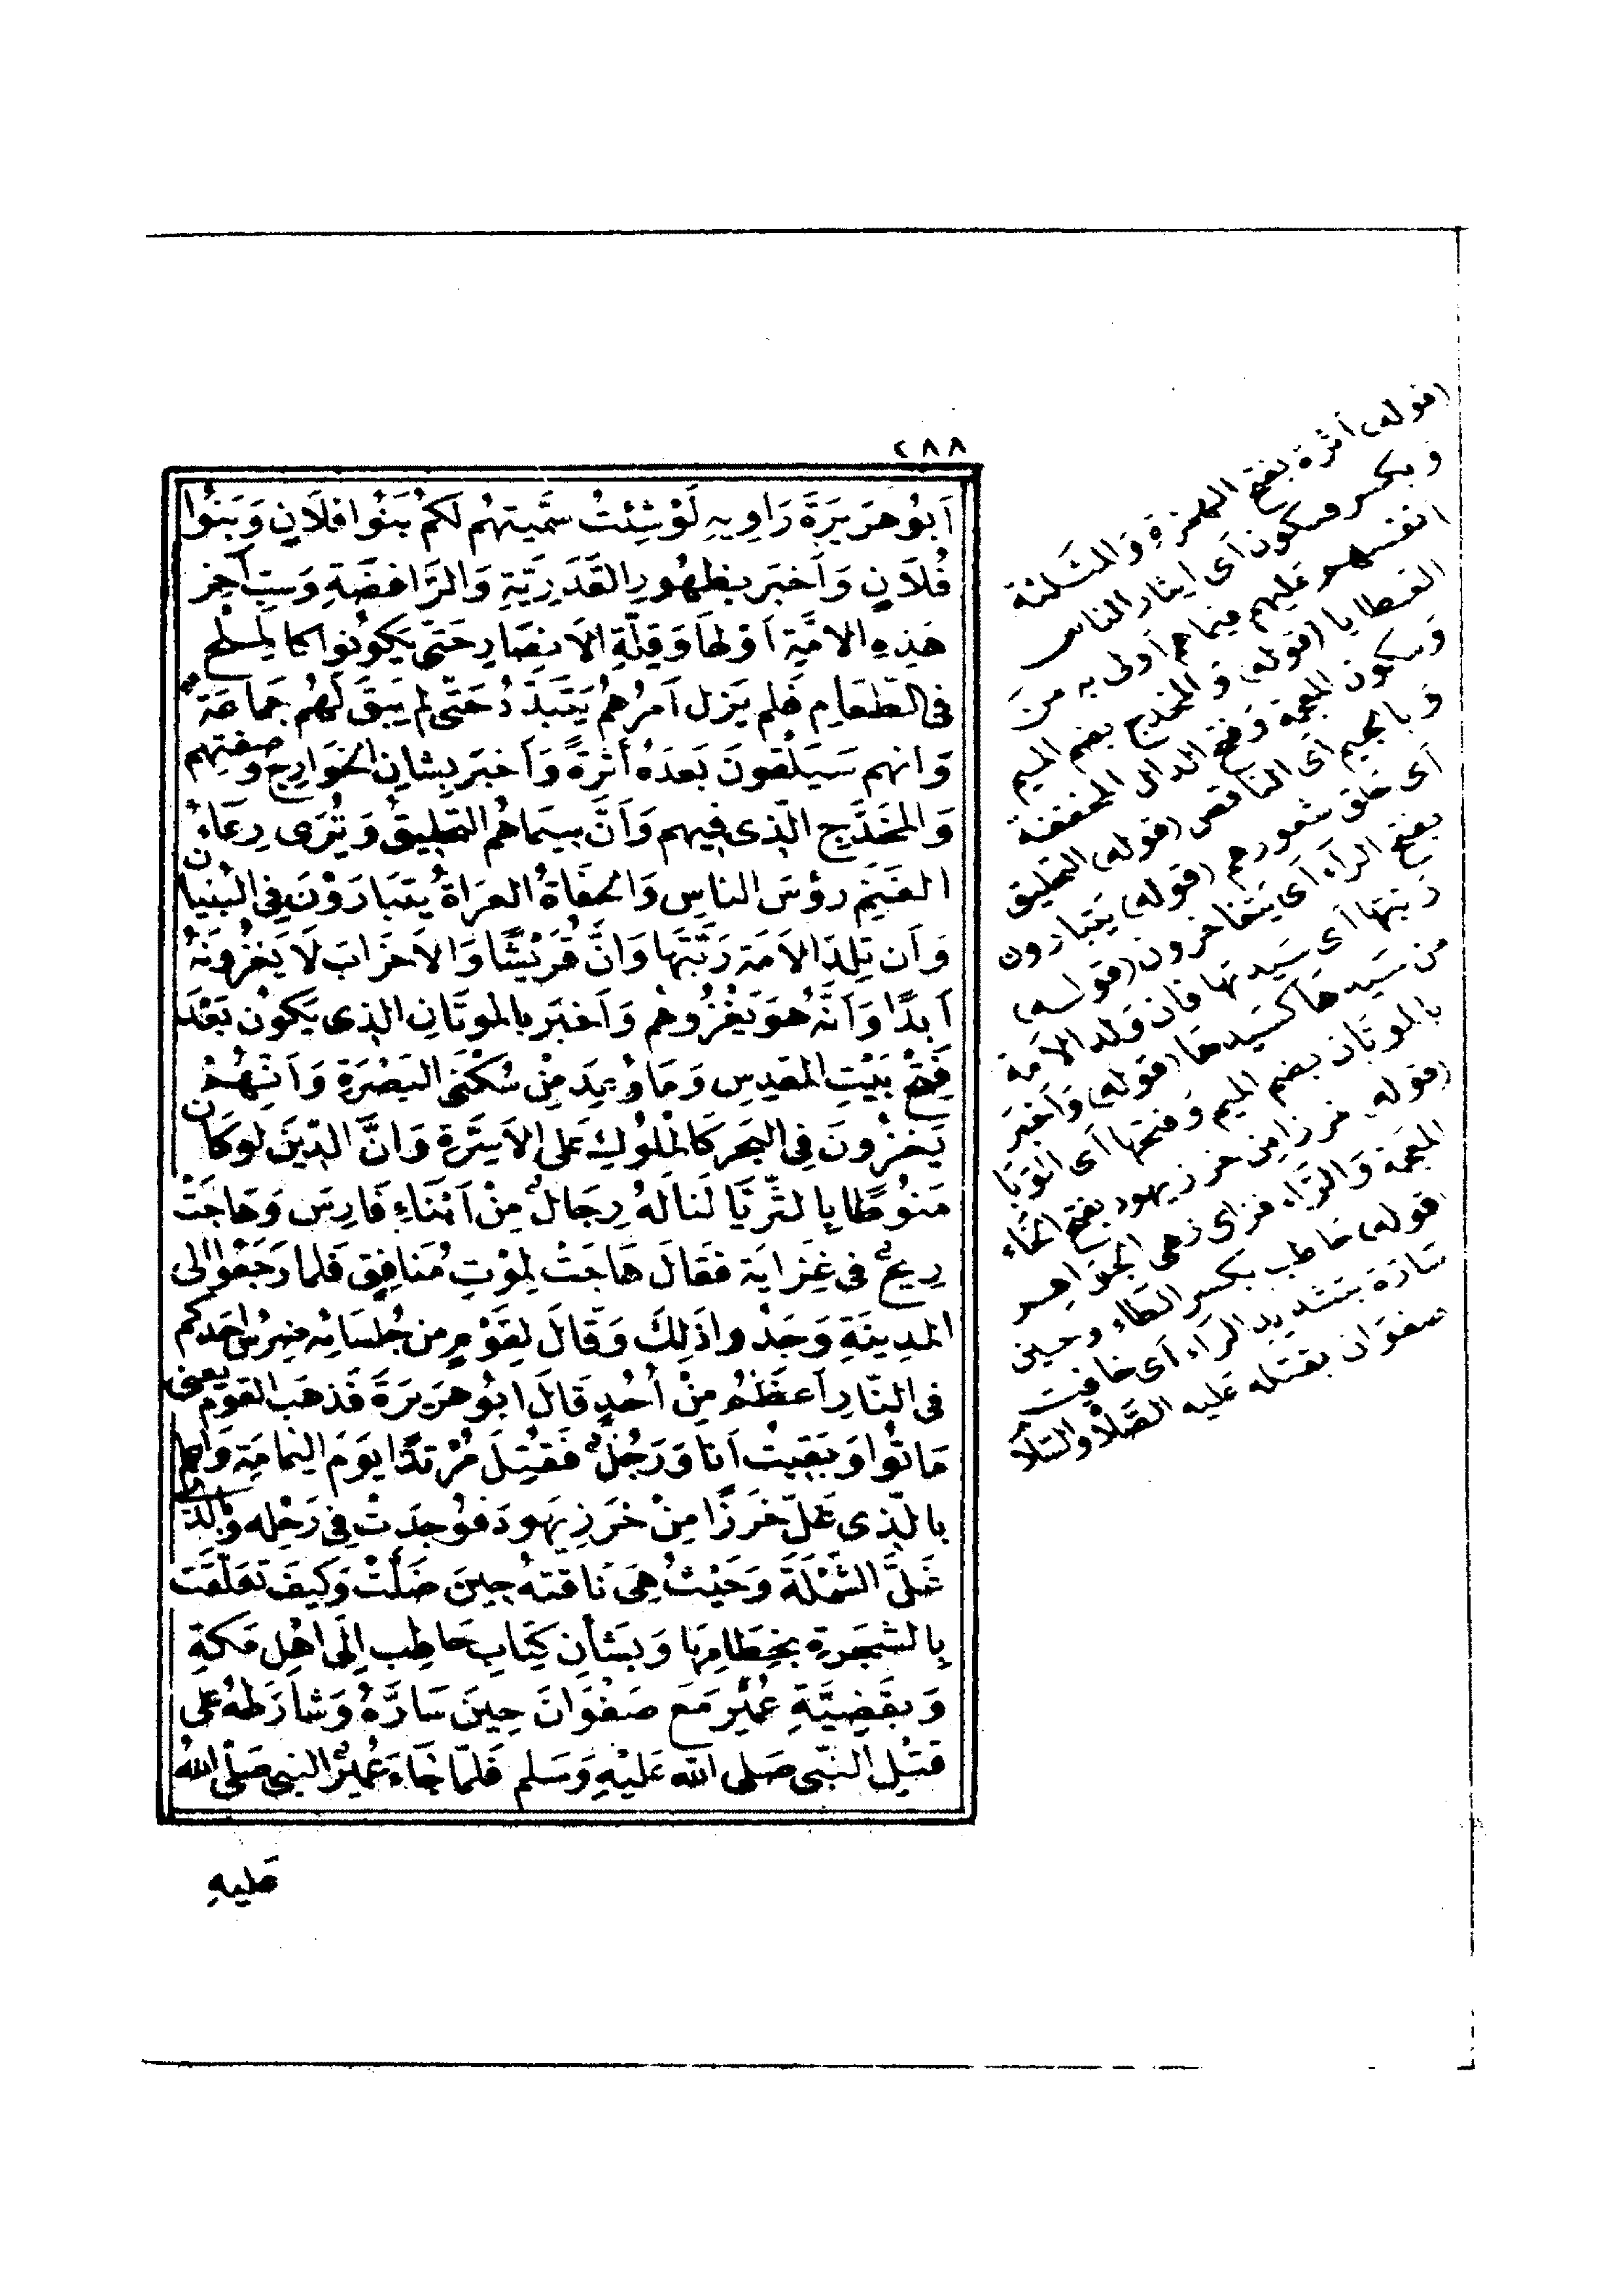 ٢٨٨
اَبُو هُرَيْرَةَ رَاوِيهِ لَوْ شِئْتُ سَمَّيْتُهُمْ لَكُمْ بَنُوا فُلَانٍ وَبَنُوا
فُلَانٍ وَاَخبَر بِظهُورِ القَدَرِيَّةِ وَالرَّافِضَةِ وَسَبِّ آخِر
هَذِهِ الامَّةِ اَوَّلهَا وَقِلَّةِ الاَنصَارِ حَتّى يَكُونُوا كالمِلْح
فِى الطَّعَامِ فَلم يَزل اَمرُهمْ يَتَبَدَّدُ حَتّى لم يَبْقَ لَهُم جَمَاعَة
وَانهم سَيَلْقَونَ بَعدَهُ أثَرةً وَاَخبَرَ بِشانِ الخَوارِجِ وصفتِهم
وَالمخدَجِ الّذِى فِيهم وَاَنَّ سِيمَاهُم التحليقُ وَتُرَى رِعَاءُ
الغَنَمِ رؤسَ الناسِ وَالحفَاةُ العرَاةُ يتَبَارَوْنَ فِى البُنيان
وَاَن تلِدَ الاَمَة رَبّتَهَا وَانَّ قُرَيْشًا وَالاَحْزَابَ لاَ يَغْزُونَهُ
اَبدًا وَاَنَّهُ هُوَ يَغْزُوهُم وَاَخبَر بالموتَانِ الذِى يَكُون بَعْدَ
فَتْح بَيْتِ المَقدِسِ وَمَا وُعِدَ مِنْ سُكْنَى البَصْرَةِ وَاَنَّهُمْ
يَغزُونَ فِى البَحر كَالمُلُوكِ عَلى الاَسِرَّةِ وَانَّ الدّينَ لوكَان
مَنوطًا بِالثّرَيَّا لَنَالَهُ رِجَالٌ مِنْ اَبْنَاءِ فَارِسَ وَهَاجَتْ
رِيحٌ فى غَزَايَة فقَالَ هَاجَتْ لِمَوْتِ مُنَافِقٍ فَلمّا رَجَعُوا الى
المدِينَةِ وَجَدُوا ذَلِكَ وَقَالَ لِقَوْمٍ مِن جُلَسَائِهِ ضِرْسُ اَحَدِكم
فى النّارِ اَعظَمُ مِنْ اُحُدٍ قَالَ ابُو هرَيرَةَ فَذهَبَ القوم يعنى
مَاتُوا وَبَقِيتُ اَنا وَرَجُلٌ فَقُتِلَ مُرْتدًّا يَومَ اليمَامَة وَاعلم
بالّذِى غَلّ خَرَزًا مِنْ خَرَزِ يَهُودَ فوُجدَتْ فِى رَحْلِه وَبالذى
غَلَّ الشّمْلَةَ وَحَيْثُ هِىَ نَاقتهُ حِينَ ضَلَّتْ وَكيفَ تعَلّقَت
بِالشَّجَرَةِ بِخِطَامِهَا وَبشَأنِ كِتَابِ حَاطِبٍ اِلَى اَهْلِ مَكةِ
وَبقَضِيَّةِ عُمَيْر مَع صَفْوَانَ حِينَ سَارَّهُ وَشارَطهُ عَلى
قَتْلِ النّبِى صَلى الله عَليْهِ وَسَلم فَلمّا جَاءَ عُمَيْرٌ النبى صَلى اللهُ
عَليهِ
(قوله) اَثرة بفتح الهمزة وَالمثَلثة
وَبكسر فسكون اَى ايثار الناس
انفسهم عَليهم فيما هم اَولى به منَ
العَطايا (قوله) وَالمخدج بضم الميم
وَسكون المعجمة وَفتح الدال المخففة
وَبالجيم اى الناقص (قوله) التحليق
اَى حلق شعورهم (قوله) يتبارون
بفتح الرّاء اَى يتفاخرون (قوله)
رَبتها اَى سَيدتها فان وَلد الاَمة
من سَيدهَا كسَيدهَا (قوله) وَاَخبَر
بالموتَان بضم الميم وَفتحها اَى الوَبا
(قوله) خرزا من خرز يهود بفتح الخاء
المعجمة وَالرّاء فزاى وَهى الجوَاهِر
(قوله) حَاطب بكسر الطاء وحين
سَارّهُ بتشديد الرّاء اَى خافت
صفوَان بقتله عَليه الصَّلاة والسّلام